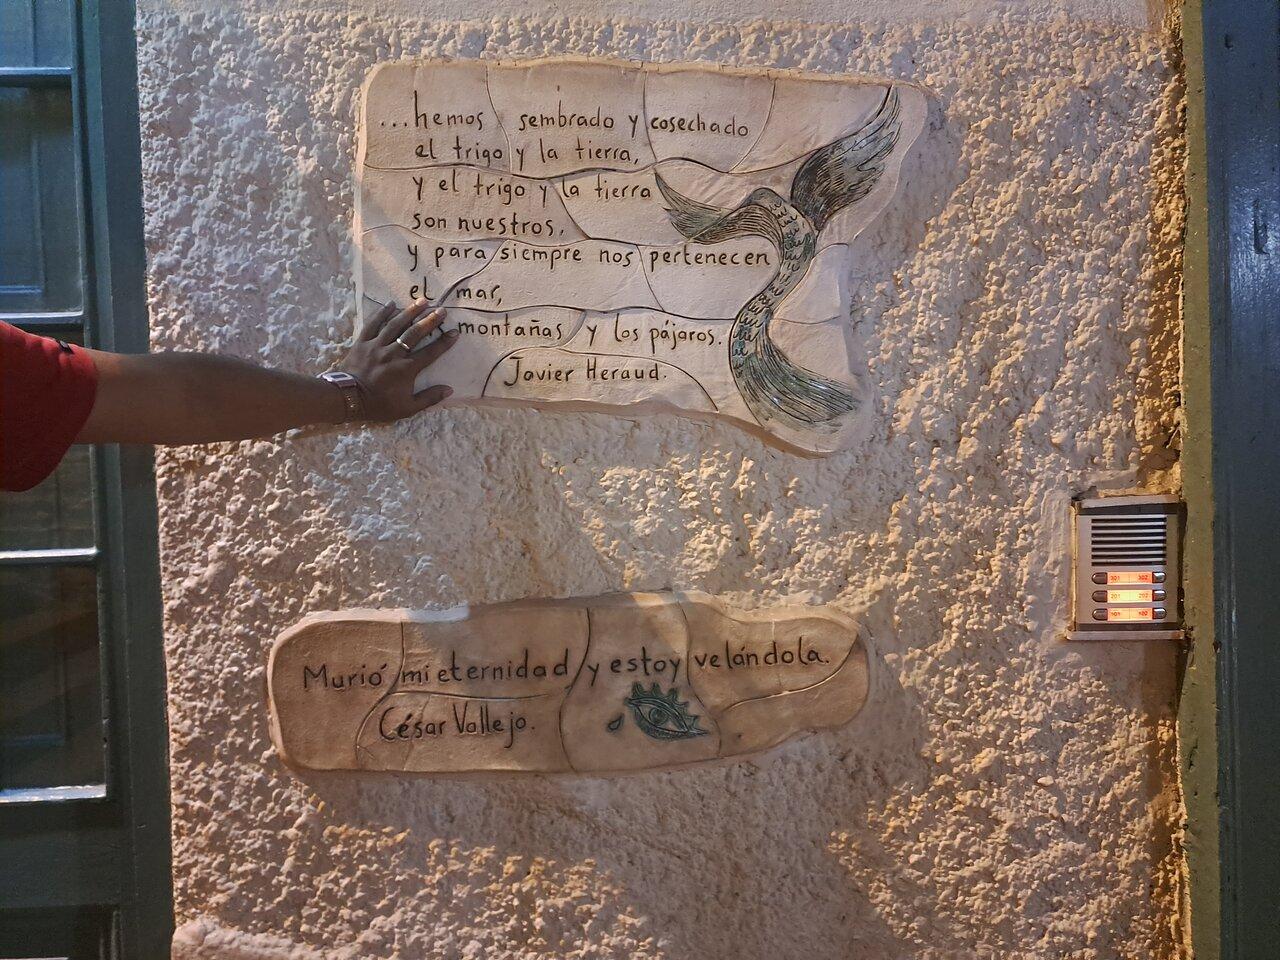 ...hemos sembrado y cosechado
el trigo y la tierra,
y el trigo y la tierra
son nuestros,
y para siempre nos pertenecen
el mar,
montañas y los pájaros.
Javier Heraud.
Murió mi eternidad y estoy velándola.
César Vallejo.
301 302
201 202
101 102